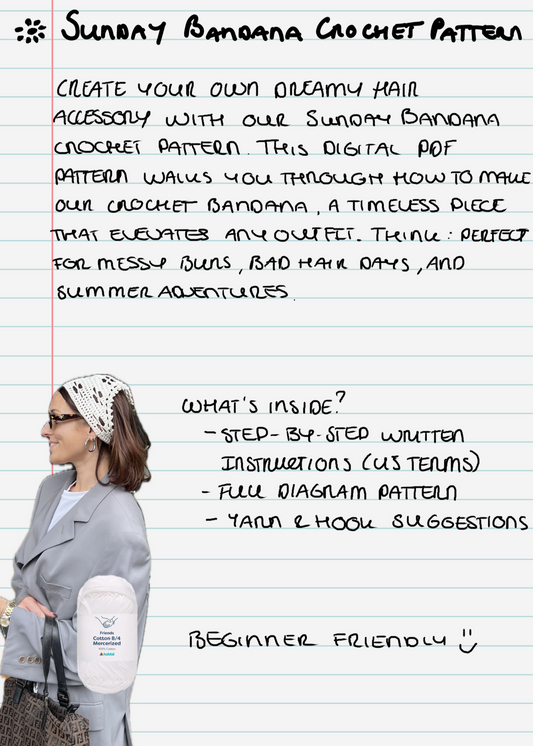 SUNDAY BANDANA CROCHET PATTERN
CREATE YOUR OWN DREAMY HAIR
ACCESSORY WITH OUR SUNDAY BANDANA
CROCHET PATTERN. THIS DIGITAL PDF
PATTERN WALKS YOU THROUGH HOW TO MAKE
OUR CROCHET BANDANA, A TIMELESS PIECE
THAT ELEVATES ANY OUTFIT. THINK: PERFECT
FOR MESSY BUNS, BAD HAIR DAYS, AND
SUMMER ADVENTURES.
WHAT'S INSIDE?
- STEP-BY-STEP WRITTEN
INSTRUCTIONS (US TERMS)
- FULL DIAGRAM PATTERN
- YARN & HOOK SUGGESTIONS
Friends
Cotton 8/4
Mercerized
100% Cotton
BEGINNER FRIENDLY